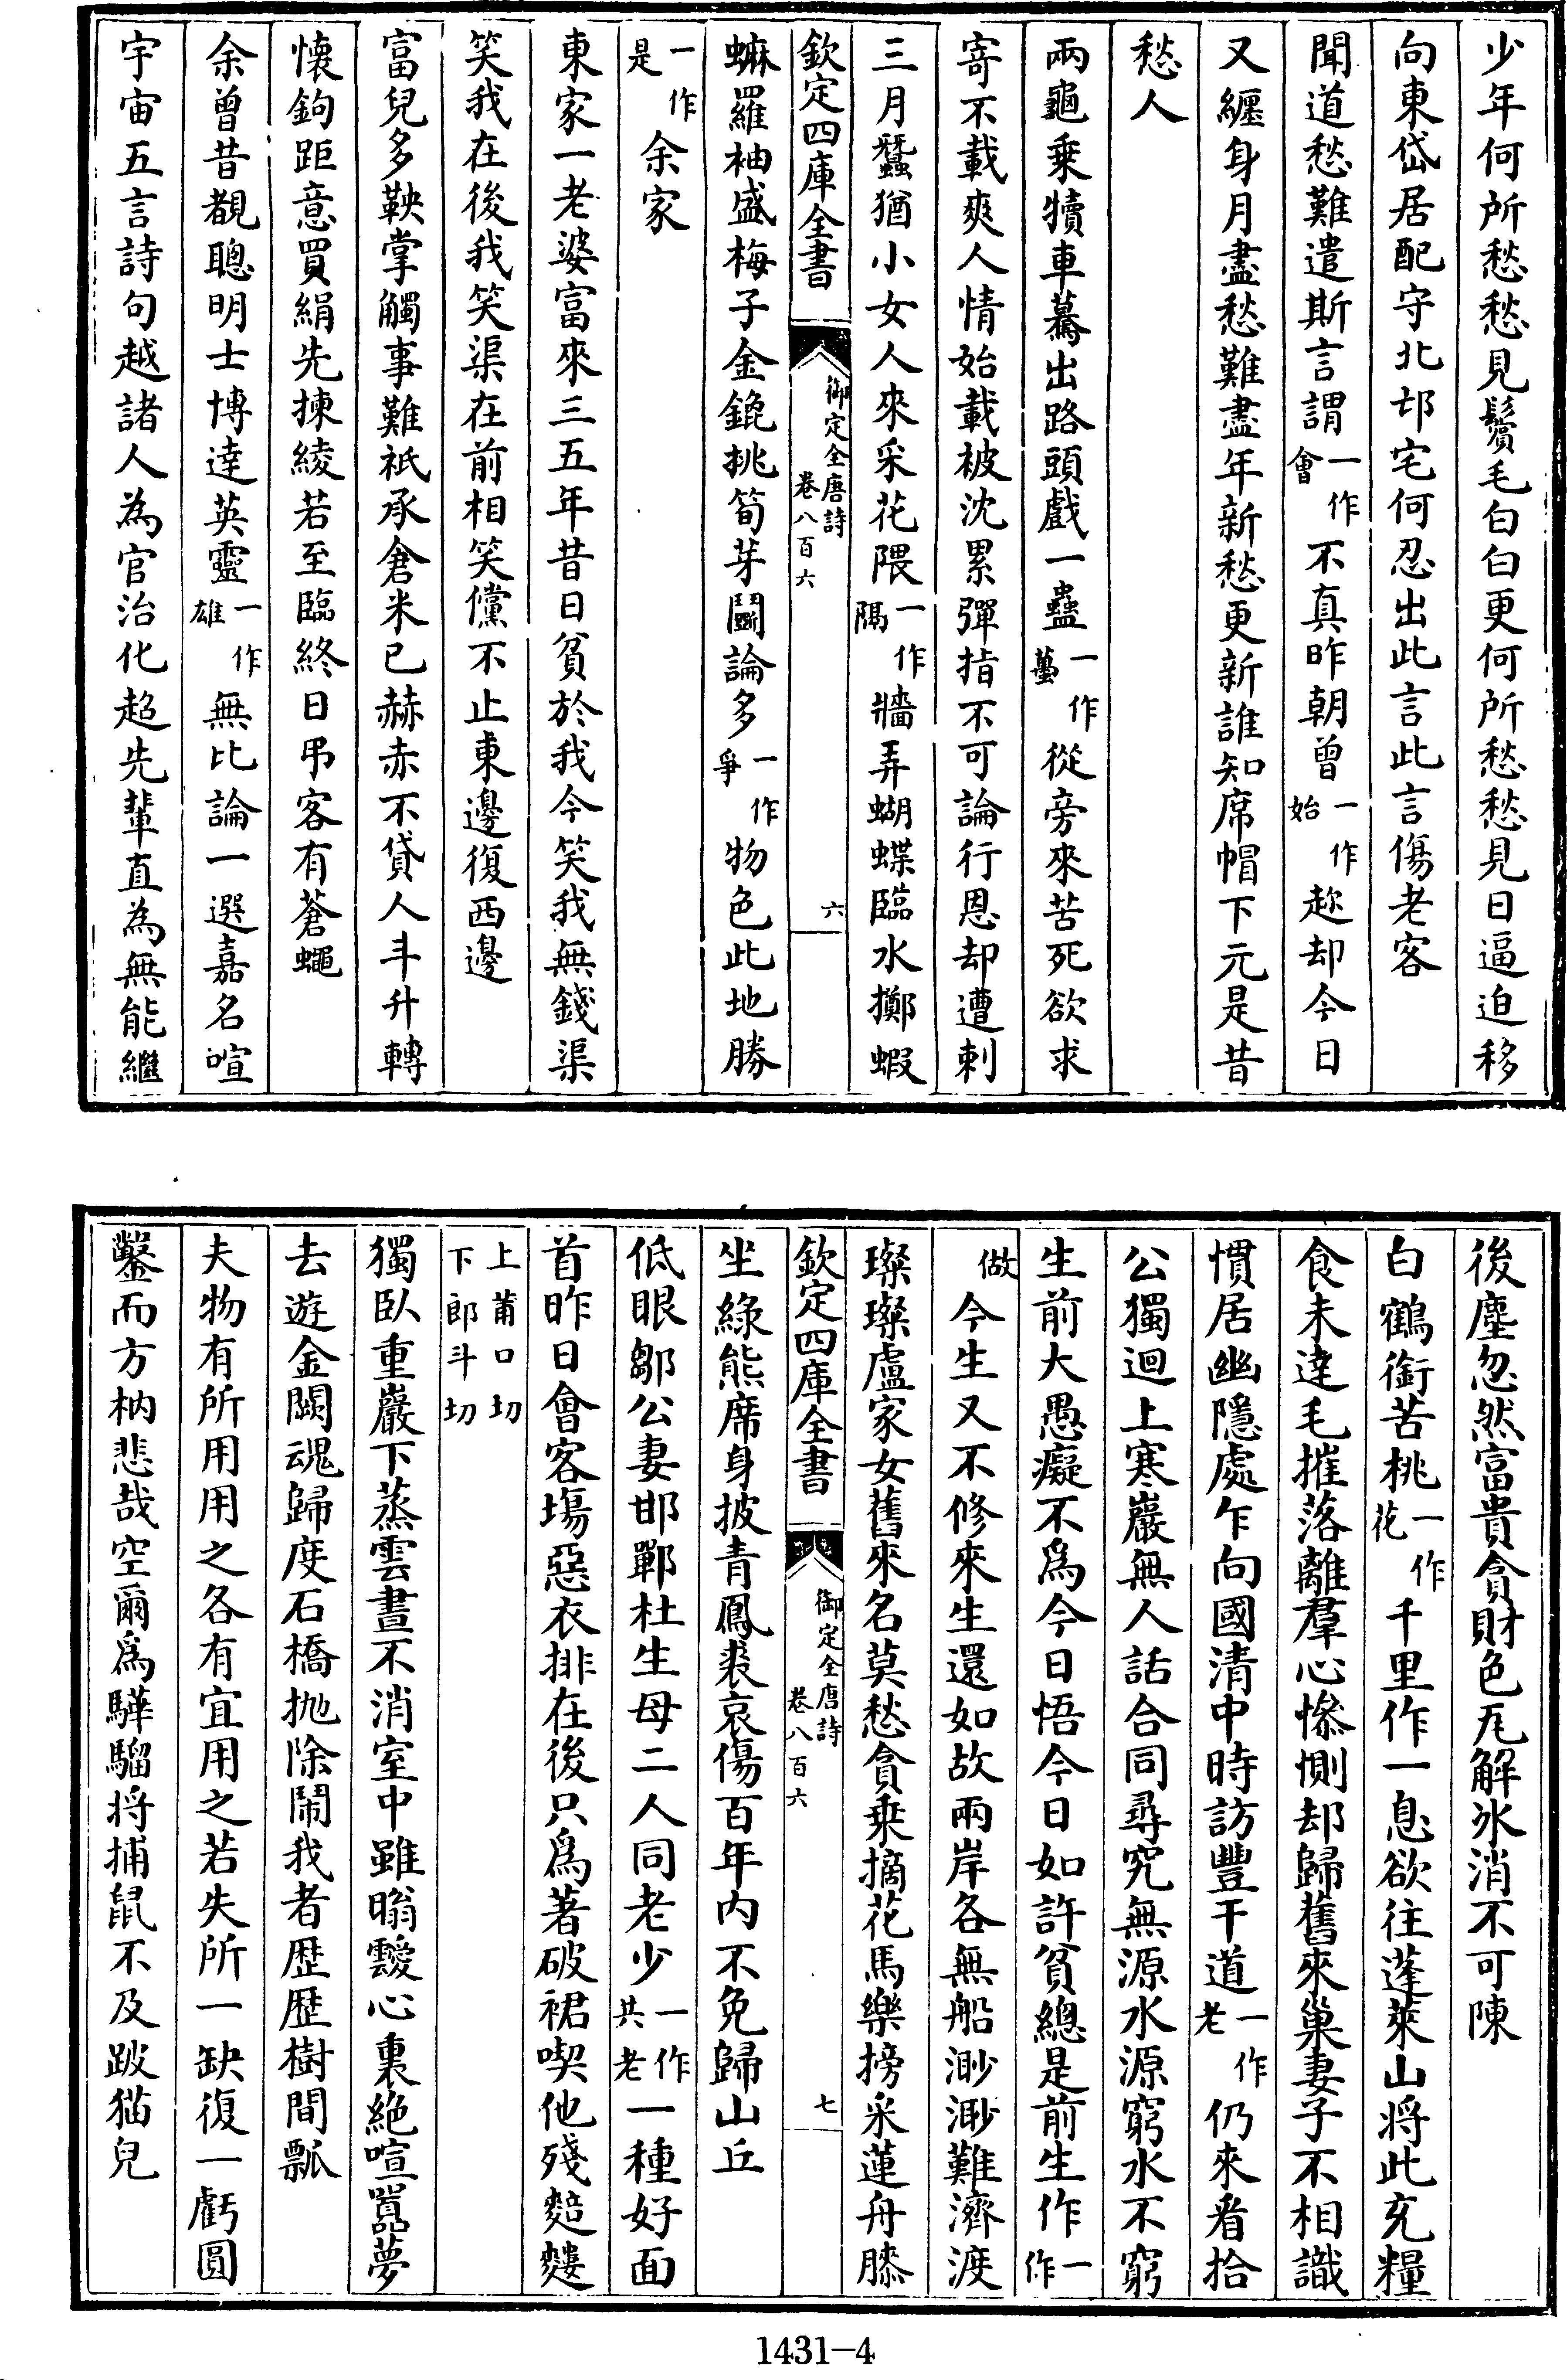 少年何所愁愁見鬢毛白白更何所愁愁見日逼迫移
向東岱居配守北邙宅何忍出此言此言傷老客
聞道愁難遣斯言謂一作會不真昨朝曾一作始趂却今日
又纏身月盡愁難盡年新愁更新誰知席帽下元是昔
愁人
兩龜乗犢車驀出路頭戲一蠱一作蠆從旁來苦死欲求
寄不載爽人情始載被沈累彈指不可論行恩却遭刺
三月蠶猶小女人來采花隈一作隅牆弄蝴蝶臨水擲蝦
欽定四庫全書
御定全唐詩
卷八百六
六
蟵羅袖盛梅子金鎞挑筍芽鬭論多一作爭物色此地勝
一作是余家
東家一老婆富來三五年昔日貧於我今笑我無錢渠
笑我在後我笑渠在前相笑儻不止東邊復西邊
富兒多鞅掌觸事難祇承倉米已赫赤不貸人斗升轉
懐鉤距意買絹先揀綾若至臨終日弔客有蒼蠅
余曾昔覩聰明士博逹英靈一作雄無比論一選嘉名喧
宇宙五言詩句越諸人為官治化超先輩直為無能繼
後塵忽然富貴貪財色瓦解氷消不可陳
白鶴銜苦桃一作花千里作一息欲往蓬萊山将此充糧
食未逹毛摧落離羣心慘惻却歸舊來巢妻子不相識
慣居幽隱處乍向國清中時訪豐干道一作老仍來看拾
公獨迴上寒巖無人話合同尋究無源水源窮水不窮
生前大愚癡不爲今日悟今日如許貧總是前生作一作
做今生又不修來生還如故兩岸各無船渺渺難濟渡
璨璨盧家女舊來名莫愁貪乗摘花馬樂搒采蓮舟膝
欽定四庫全書
御定全唐詩
卷八百六
七
坐綠熊席身披青鳳裘哀傷百年内不免歸山丘
低眼鄒公妻邯鄲杜生母二人同老少一作共老一種好面
首昨日會客塲惡衣排在後只爲著破裙喫他殘䴺䴹
上莆口切下郎斗切
獨臥重巖下蒸雲晝不消室中雖暡靉心裏絶喧囂夢
去遊金闕魂歸度石橋抛除鬧我者歴歴樹間瓢
夫物有所用用之各有宜用之若失所一缺復一虧圓
鑿而方枘悲哉空爾爲驊騮将捕鼠不及跛猫兒
1431-4